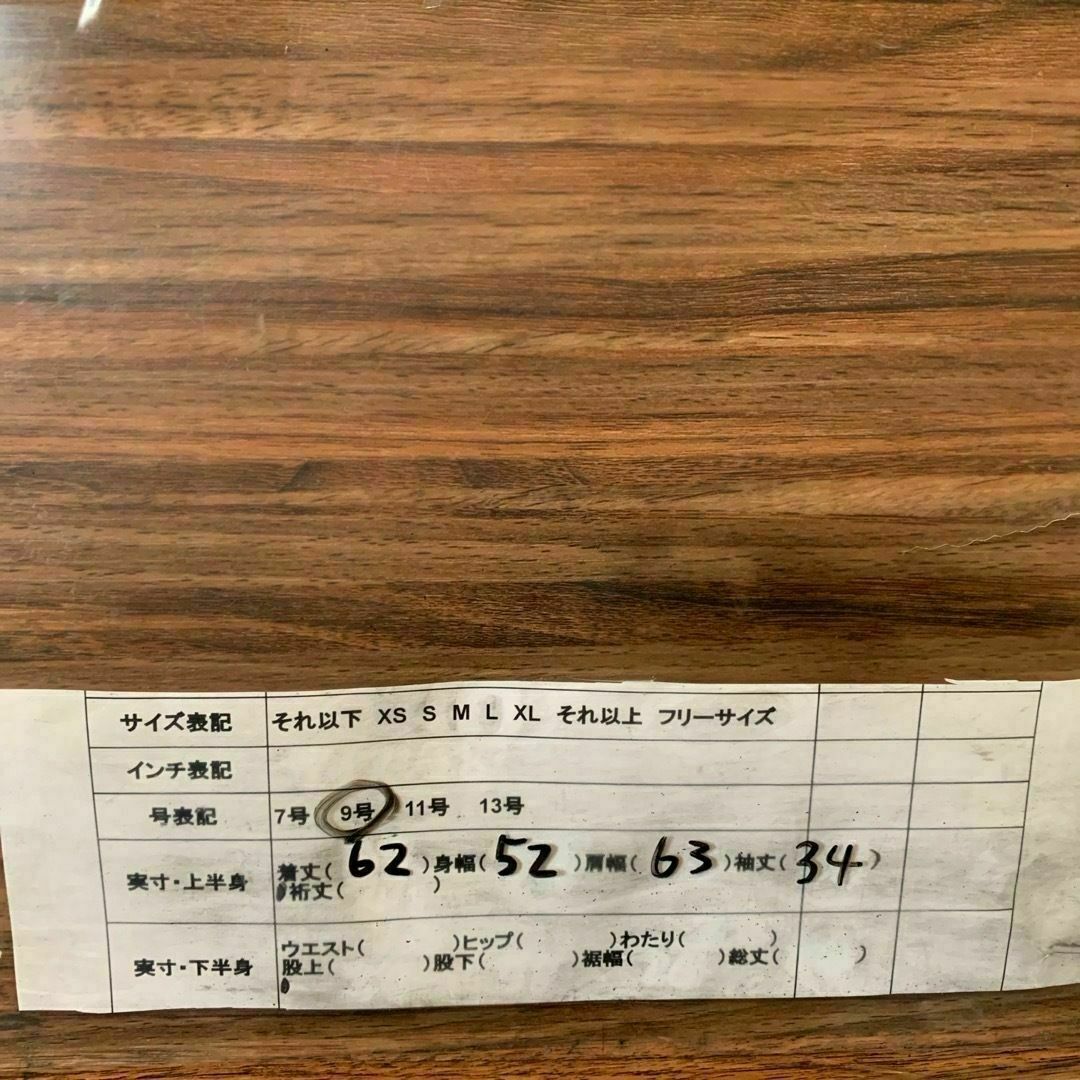 サイズ表記 それ以下 XS S M L XL それ以上 フリーサイズ
インチ表記
号表記 7号 9号 11号 13号
実寸・上半身 着丈( 62 )身幅( 52 )肩幅( 63 )袖丈( 34 )
裄丈( )
実寸・下半身 ウエスト( )ヒップ( )わたり( )
股上( )股下( )裾幅( )総丈( )